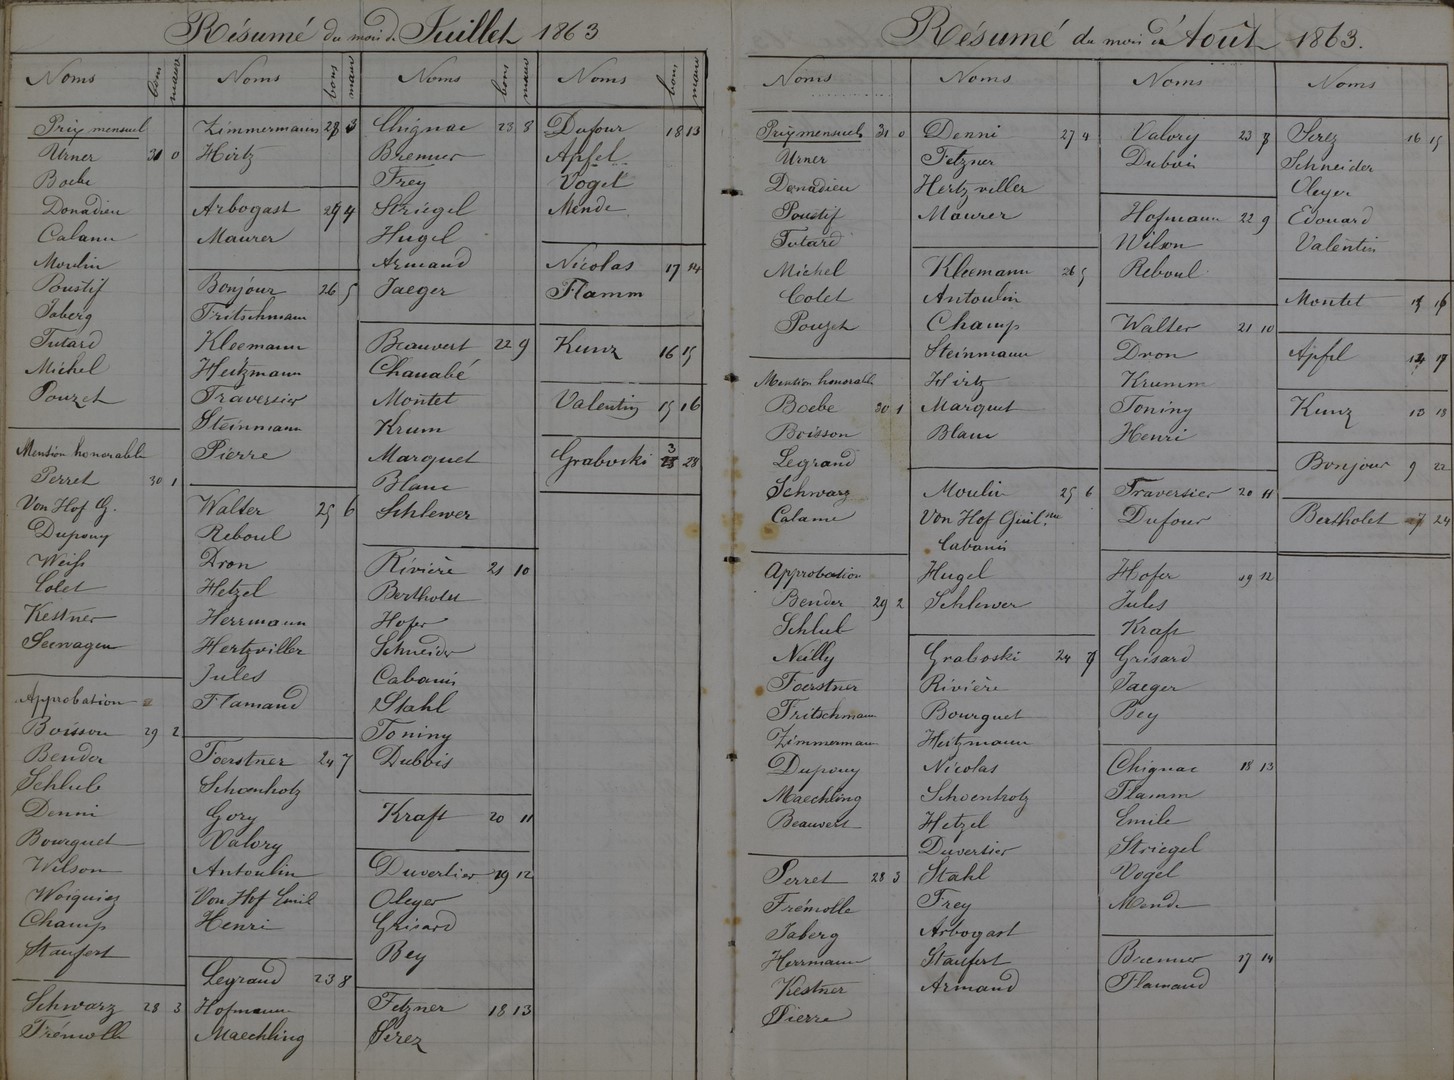 Résumé du mois de Juillet 1863
Noms bons maux
Prix mensuel
Urner 31 0
Boebe
Donadieu
Calame
Moulin
Poustif
Jaberg
Tutard
Michel
Pouzet
Mension honorable
Perret 30 1
Von Hof G.
Dupouy
Weiss
Colet
Kestner
Seewagen
Approbation
Boisson 29 2
Bender
Schlub
Denni
Bourguet
Wilson
Woigniez
Champ
Staufert
Schwarz 28 3
Frémolle
Noms bons maux
Zimmermann 28 3
Hirtz
Arbogast 27 4
Maurer
Bonjour 26 5
Fritschmann
Kleemann
Heitzmann
Traversier
Steinmann
Pierre
Walter 25 6
Reboul
Dron
Hetzel
Herrmann
Hertzviller
Jules
Flamand
Foerstner 24 7
Schoenholz
Gory
Valory
Antoulin
Von Hof Emil
Henri
Legrand 23 8
Hofmann
Maechling
Noms bons maux
Chignac 23 8
Bremer
Frey
Striegel
Hugel
Armand
Jaeger
Beauvert 22 9
Chauabé
Montet
Krum
Marguet
Blanc
Schlewer
Rivière 21 10
Bertholet
Hofer
Schneider
Cabanis
Stahl
Toniny
Dubois
Kraft 20 11
Duvertier 19 12
Oleyer
Grisard
Bey
Fetzner 18 13
Serez
Noms bons maux
Dufour 18 13
Apfel
Vogel
Mende
Nicolas 17 14
Flamm
Kunz 16 15
Valentin 15 16
Graboski 3 28
Résumé du mois d'Août 1863.
Noms
Prix mensuels 31 0
Urner
Donadieu
Poustif
Tutard
Michel
Colet
Pouzet
Mention honorable
Boebe 30 1
Boisson
Legrand
Schwarz
Calame
Approbation
Bender 29 2
Schlub
Neilly
Foerstner
Fritschmann
Zimmermann
Dupouy
Maechling
Beauvert
Perret 28 3
Frémolle
Jaberg
Herrmann
Kestner
Pierre
Noms
Denni 27 4
Fetzner
Hertzviller
Maurer
Kleemann 26 5
Antoulin
Champ
Steinmann
Hirtz
Marguet
Blanc
Moulin 25 6
Von Hof Guil.me
Cabanis
Hugel
Schlewer
Graboski 24 7
Rivière
Bourguet
Heitzmann
Nicolas
Schoenholz
Hetzel
Duvertier
Stahl
Frey
Arbogast
Staufert
Armand
Noms
Valory 23 8
Dubois
Hofmann 22 9
Wilson
Reboul
Walter 21 10
Dron
Krumm
Toniny
Henri
Traversier 20 11
Dufour
Hofer 19 12
Jules
Kraft
Grisard
Jaeger
Bey
Chignac 18 13
Flamm
Emile
Striegel
Vogel
Mende
Bremer 17 14
Flamand
Noms
Serez 16 15
Schneider
Oleyer
Edouard
Valentin
Montet 15 16
Apfel 14 17
Kunz 13 18
Bonjour 9 22
Bertholet 7 24